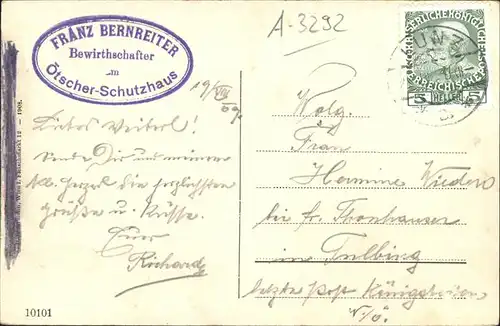 FRANZ BERNREITER
Bewirthschafter
am
Ötscher-Schutzhaus
A-3292
KAISERLICHE KÖNIGLICHE
ÖSTERREICHISCHE
5 HELLER 5
19/VIII
09
Liebes Weiberl!
Sende Dir und meinem
die herzlichsten
Grüße u. Küsse.
Euer
Richard
10101
Wolg.
Frau
Hermine
bei Fr. Thonhauser
in Tulbing
letzte Post Königstetten
N.Ö.